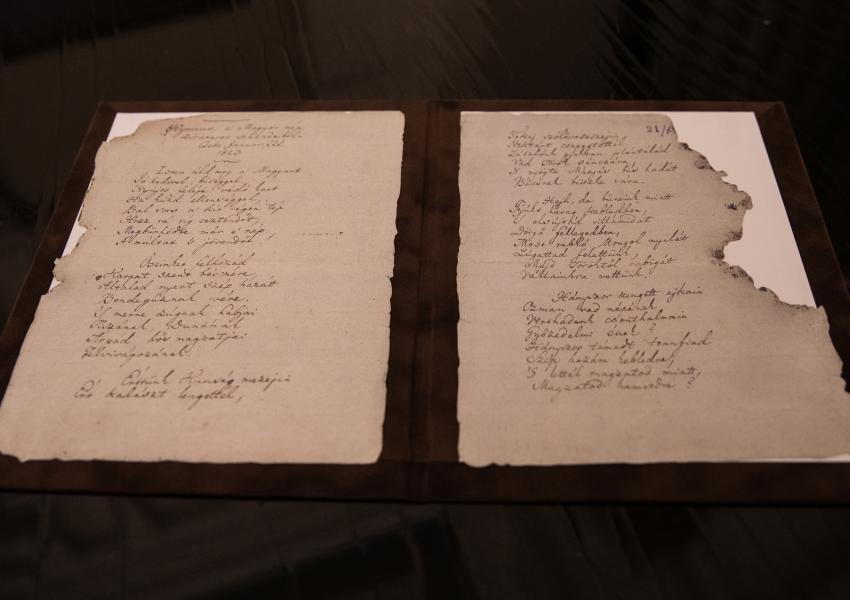 Hymnus, a Magyar nép
zivataros századaiból.
Cseke Januar. 22d
1823
Isten áldd meg a Magyart
Jó kedvel, bőséggel,
Nyújts feléje védő kart
Ha küzd ellenséggel;
Bal sors a kit régen tép
Hozz rá víg esztendőt,
Megbűnhődte már e nép
A multat 's jövendőt.
Őseinket felhozád
Kárpát szent bérczére,
Általad nyert szép hazát
Bendegúznak vére.
'S merre zúgnak habjai
Tiszának, Dunának
Árpád hős magzatjai
Felvirágozának.
Értünk Kunság mezejin
Ért kalászt lengettél,
21/
Tokaj szőlővesszején
Nektárt csepegtettél.
Zászlónk gyakran plántálád
Vad Török sánczára,
'S nyögte Mátyás bús hadát
Bécsnek büszke vára.
Hajh, de bűneink miatt
Gyúlt harag kebledben,
'S elsújtád villámidat
Dörgő fellegedben,
Most rabló Mongol nyilát
Zúgattad felettünk,
Majd Töröktől rabigát
Vállainkra vettünk.
Hányszor zengett ajkain
Ozman vad népének
Vert hadunk csonthalmain
Győzedelmi ének?
Hányszor támadt tenn fiad
Szép hazám kebledre,
'S lettél magzatod miatt,
Magzatod hamvedre?